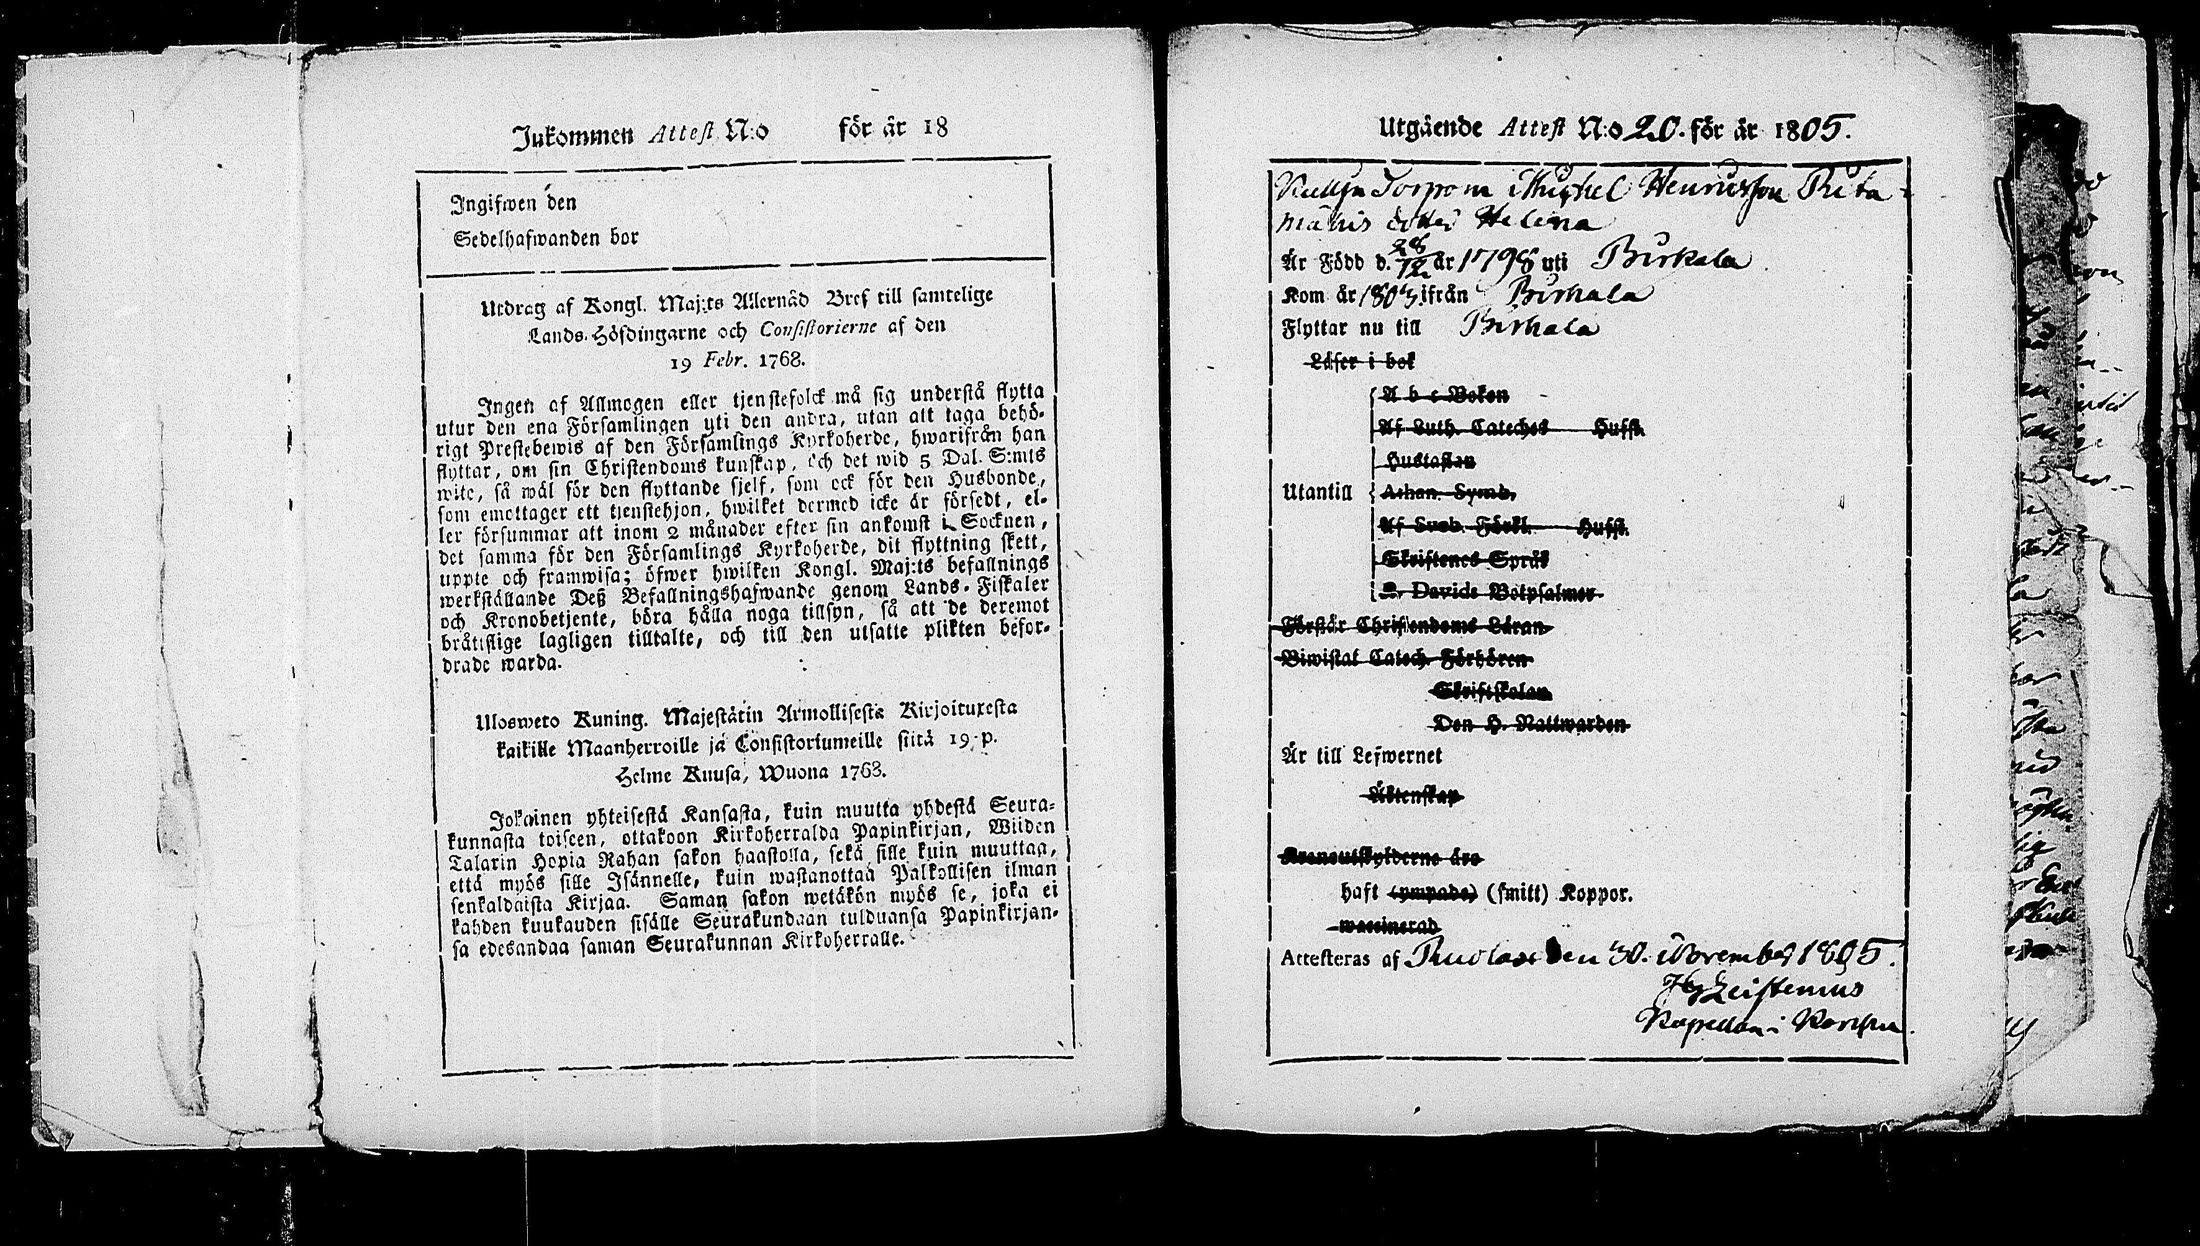 Inkommen Attest N:o för år 18
Ingifwen den
Sedelhafwanden bor
Utdrag af Kongl. Maj:ts Allernåd Bref till samtelige
Lands-Höfdingarne och Consistorierne af den
19 Febr. 1768.
Ingen af Allmogen eller tjenstefolck må sig understå flytta
utur den ena Församlingen uti den andra, utan att taga behö-
rigt Prestebewis af den Församlings Kyrkoherde, hwarifrån han
flyttar, om sin Christendoms kunskap, och det wid 5 Dal. S:mts
wite, så wäl för den flyttande sjelf, som ock för den Husbonde,
som emottager ett tjenstehjon, hwilket dermed icke är försedt, el-
ler försummar att inom 2 månader efter sin ankomst i Socknen,
det samma för den Församlings Kyrkoherde, dit flyttning skett,
uppte och framwisa; öfwer hwilken Kongl. Maj:ts befallnings
werkställande Deß Befallningshafwande genom Lands-Fiskaler
och Kronobetjente, böra hålla noga tillsyn, så att de deremot
bråttslige lagligen tilltalte, och till den utsatte plikten befor-
drade warda.
Ulosweto Kuning. Majestätin Armollisesta Kirjoituxesta
kaikille Maanherroille ja Consistoriumeille siitä 19 p.
Helme Kuusa, Wuona 1768.
Jokainen yhteisestä Kansasta, kuin muutta yhdestä Seura-
kunnasta toiseen, ottakoon Kirkoherralda Papinkirjan, Wiiden
Talarin Hopia Rahan sakon haastolla, sekä sille kuin muuttaa,
että myös sille Isännelle, kuin wastanottaa Palkollisen ilman
senkaldaista Kirjaa. Saman sakon wetäkön myös se, joka ei
kahden kuukauden sisälle Seurakundaan tulduansa Papinkirjan-
sa edesandaa saman Seurakunnan Kirkoherralle.
Utgående Attest N:o 20. för år 1805.
Torp Henricsson
dotter Helena
Är Född d. 28/12 år 1798 uti Birkala
Kom år 1803 ifrån Birkala
Flyttar nu till Birkala
Läser i bok
A b c Boken
Af Luth. Cateches Hufst.
Hustaflan
Utantill Athan. Symb.
Af Sveb. Förkl. Hufst.
Skriftenes Språk
Davids Botpsalmer
Förstår Christendoms Läran
Biwistat Catech. Förhören
Skriftskolan
Den H. Nattwarden
Är till Lefwernet
Äktenskap
Kronoutskylderne äro
haft (ympade) (smitt) Koppor.
waccinerad
Attesteras af den 30. November 1805.
Leistenius
Kapellan i